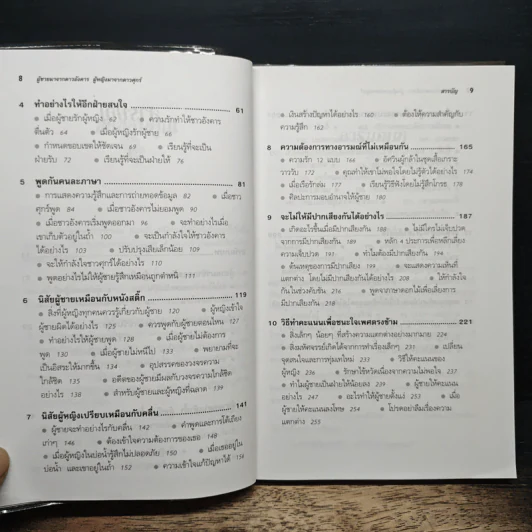 8 ผู้ชายมาจากดาวอังคาร ผู้หญิงมาจากดาวศุกร์
4 ทำอย่างไรให้อีกฝ่ายสนใจ 61
● เมื่อผู้ชายรักผู้หญิง 62 ● ความรักทำให้ชาวอังคาร
ตื่นตัว 64 ● เมื่อผู้หญิงรักผู้ชาย 66 ●
กำหนดขอบเขตให้ชัดเจน 69 ● เรียนรู้ที่จะเป็น
ฝ่ายรับ 72 ● เรียนรู้ที่จะเป็นฝ่ายให้ 76
5 พูดกันคนละภาษา 81
● การแสดงความรู้สึกและการถ่ายทอดข้อมูล 82 ● เมื่อชาว
ศุกร์พูด 84 ● เมื่อชาวอังคารไม่ยอมพูด 90 ●
เมื่อชาวอังคารเริ่มพูดออกมา 94 ● จะทำอย่างไรเมื่อ
เขาเก็บตัวอยู่ในถ้ำ 100 ● จะเป็นกำลังใจให้ชาวอังคาร
ได้อย่างไร 103 ● ปรับปรุงเสียเล็กน้อย 109 ●
จะให้กำลังใจชาวศุกร์ได้อย่างไร 110 ●
พูดอย่างไรไม่ให้ผู้ชายรู้สึกเหมือนถูกตำหนิ 111
6 นิสัยผู้ชายเหมือนกับหนังสติ๊ก 119
● สิ่งที่ผู้หญิงทุกคนควรรู้เกี่ยวกับผู้ชาย 120 ● ผู้หญิงเข้าใจ
ผู้ชายผิดได้อย่างไร 125 ● ควรพูดกับผู้ชายตอนไหน 127
● ทำอย่างไรให้ผู้ชายพูด 128 ● เมื่อผู้ชายไม่ต้องการ
พูด 130 ● เมื่อผู้ชายไม่หนีไป 133 ● พยายามที่จะ
เป็นอิสระให้มากขึ้น 134 ● อุปสรรคของวงจรความ
ใกล้ชิด 135 ● อดีตของผู้ชายมีผลกับวงจรความใกล้ชิด
อย่างไร 138 ● สำหรับผู้ชายและผู้หญิงที่ฉลาด 139
7 นิสัยผู้หญิงเปรียบเหมือนกับคลื่น 141
● ผู้ชายจะทำอย่างไรกับคลื่น 142 ● คำพูดและการโต้เถียง
เก่าๆ 146 ● ต้องเข้าใจความต้องการของเธอ 148 ●
เมื่อผู้หญิงในบ่อน้ำรู้สึกไม่ปลอดภัย 150 ● เมื่อเธออยู่ใน
บ่อน้ำ และเขาอยู่ในถ้ำ 152 ● ความเข้าใจแก้ปัญหาได้ 154
สารบัญ 9
● เงินสร้างปัญหาได้อย่างไร 160 ● ต้องให้ความสำคัญกับ
ความรู้สึก 162
8 ความต้องการทางอารมณ์ที่ไม่เหมือนกัน 165
● ความรัก 12 แบบ 166 ● อัศวินผู้กล้าในชุดเสื้อเกราะ
วาววับ 172 ● คุณทำให้เขาไม่พอใจโดยไม่รู้ตัวได้อย่างไร 174
● เมื่อเรือรักล่ม 177 ● เรียนรู้วิธีฟังโดยไม่รู้สึกโกรธ 178
● ศิลปะการมอบอำนาจให้ผู้ชาย 180
9 จะไม่ให้มีปากเสียงกันได้อย่างไร 187
● เกิดอะไรขึ้นเมื่อมีปากเสียงกัน 188 ● ไม่มีใครไม่เจ็บปวด
จากการมีปากเสียงกัน 188 ● หลัก 4 ประการเพื่อหลีกเลี่ยง
ความเจ็บปวด 191 ● ทำไมต้องมีปากเสียงกัน 194
● ต้นเหตุของการมีปากเสียง 199 ● จะแสดงความเห็นที่
แตกต่าง โดยไม่มีปากเสียงกันได้อย่างไร 208 ● ให้กำลังใจ
กันในช่วงคับขัน 216 ● พูดจาภาษาดอกไม้เพื่อเลี่ยงการ
มีปากเสียงกัน 218
10 วิธีทำคะแนนเพื่อชนะใจเพศตรงข้าม 221
● สิ่งเล็กๆ น้อยๆ ที่สร้างความแตกต่างอย่างมากมาย 223 ●
สิ่งมหัศจรรย์เกิดได้จากการทำเรื่องเล็กๆ 233 ● เปลี่ยน
จุดสนใจและการทุ่มเทใหม่ 233 ● วิธีให้คะแนนของ
ผู้หญิง 236 ● รักษาไข้หวัดเนื่องจากความไม่พอใจ 237
● ทำไมผู้ชายเป็นฝ่ายให้น้อยลง 239 ● ผู้ชายให้คะแนน
อย่างไร 247 ● อะไรทำให้ผู้ชายตั้งแง่ 253 ● เมื่อ
ผู้ชายให้คะแนนลงโทษ 254 ● โปรดอย่าลืมเรื่องความ
แตกต่าง 255